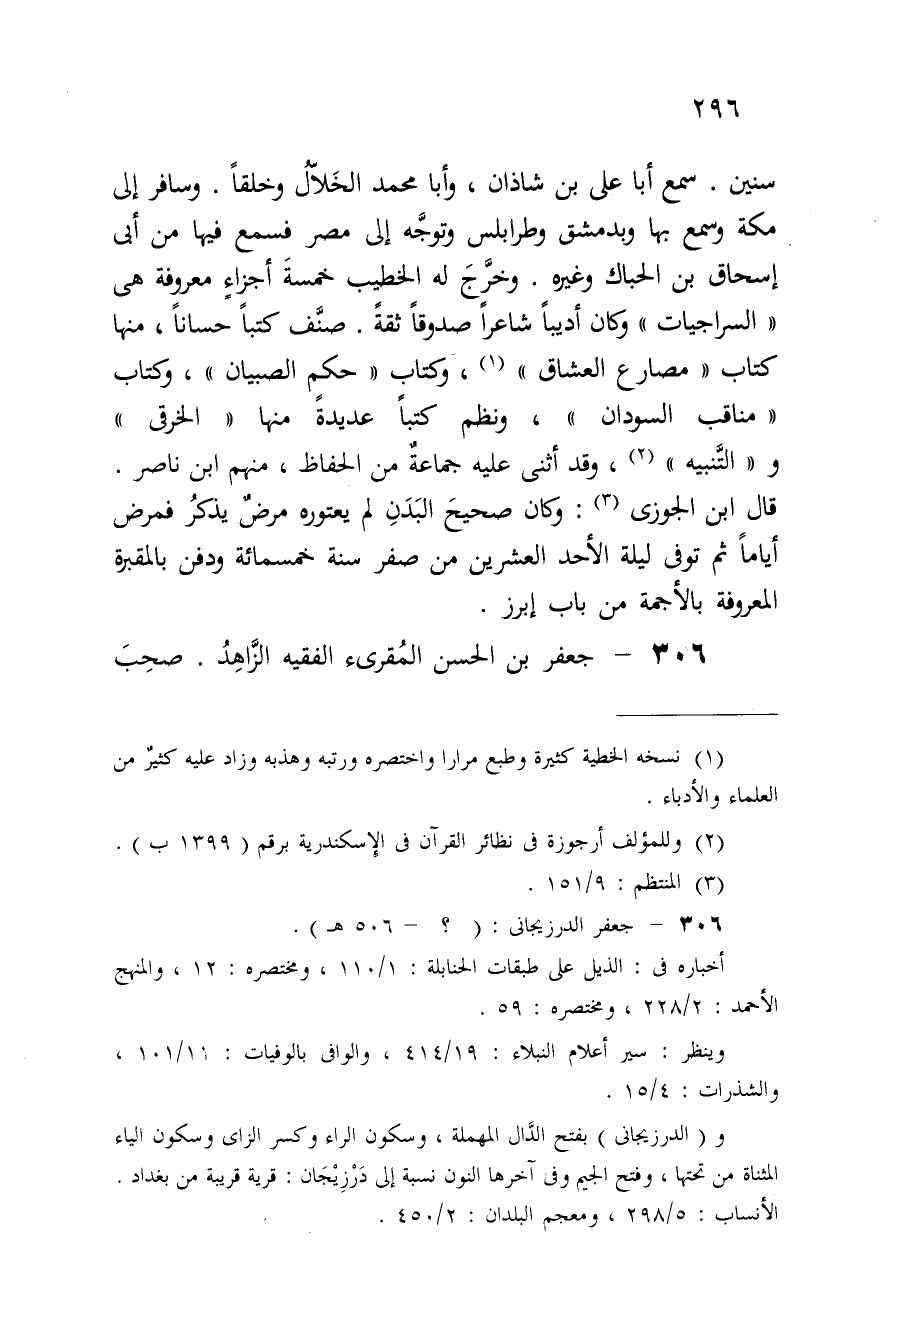 ٢٩٦
سنين . سمع أبا على بن شاذان ، وأبا محمد الخَلاّلُ وخلقاً . وسافر إلى
مكة وسمع بها وبدمشق وطرابلس وتوجَّه إلى مصر فسمع فيها من أبى
إسحاق بن الحباك وغيره . وخرَّجَ له الخطيب خمسةَ أجزاءٍ معروفة هى
« السراجيات » وكان أديباً شاعراً صدوقاً ثقةً . صنَّف كتباً حساناً ، منها
كتاب « مصارع العشاق » (١) ، وكتاب « حكم الصبيان » ، وكتاب
« مناقب السودان » ، ونظم كتباً عديدةً منها « الخرقى »
و « التَّنبيه » (٢) ، وقد أثنى عليه جماعةٌ من الحفاظ ، منهم ابن ناصر .
قال ابن الجوزى (٣) : وكان صحيحَ البَدَنِ لم يعتوره مرضٌ يذكرُ فمرض
أياماً ثم توفى ليلة الأحد العشرين من صفر سنة خمسمائة ودفن بالمقبرة
المعروفة بالأجمة من باب إبرز .
٣٠٦ – جعفر بن الحسن المُقرىء الفقيه الزَّاهِدُ . صحِبَ
(١) نسخه الخطية كثيرة وطبع مرارا واختصره ورتبه وهذبه وزاد عليه كثيرٌ من
العلماء والأدباء .
(٢) وللمؤلف أرجوزة فى نظائر القرآن فى الإسكندرية برقم ( ١٣٩٩ ب ) .
(٣) المنتظم : ١٥١/٩ .
٣٠٦ – جعفر الدرزيجانى : ( ؟ – ٥٠٦ هـ ) .
أخباره فى : الذيل على طبقات الحنابلة : ١١٠/١ ، ومختصره : ١٢ ، والمنهج
الأحمد : ٢٢٨/٢ ، ومختصره : ٥٩ .
وينظر : سير أعلام النبلاء : ٤١٤/١٩ ، والوافى بالوفيات : ١٠١/١١ ،
والشذرات : ١٥/٤ .
و ( الدرزيجانى ) بفتح الدَّال المهملة ، وسكون الراء وكسر الزاى وسكون الياء
المثناة من تحتها ، وفتح الجيم وفى آخرها النون نسبة إلى دَرْزِيْجَان : قرية قريبة من بغداد .
الأنساب : ٢٩٨/٥ ، ومعجم البلدان : ٤٥٠/٢ .